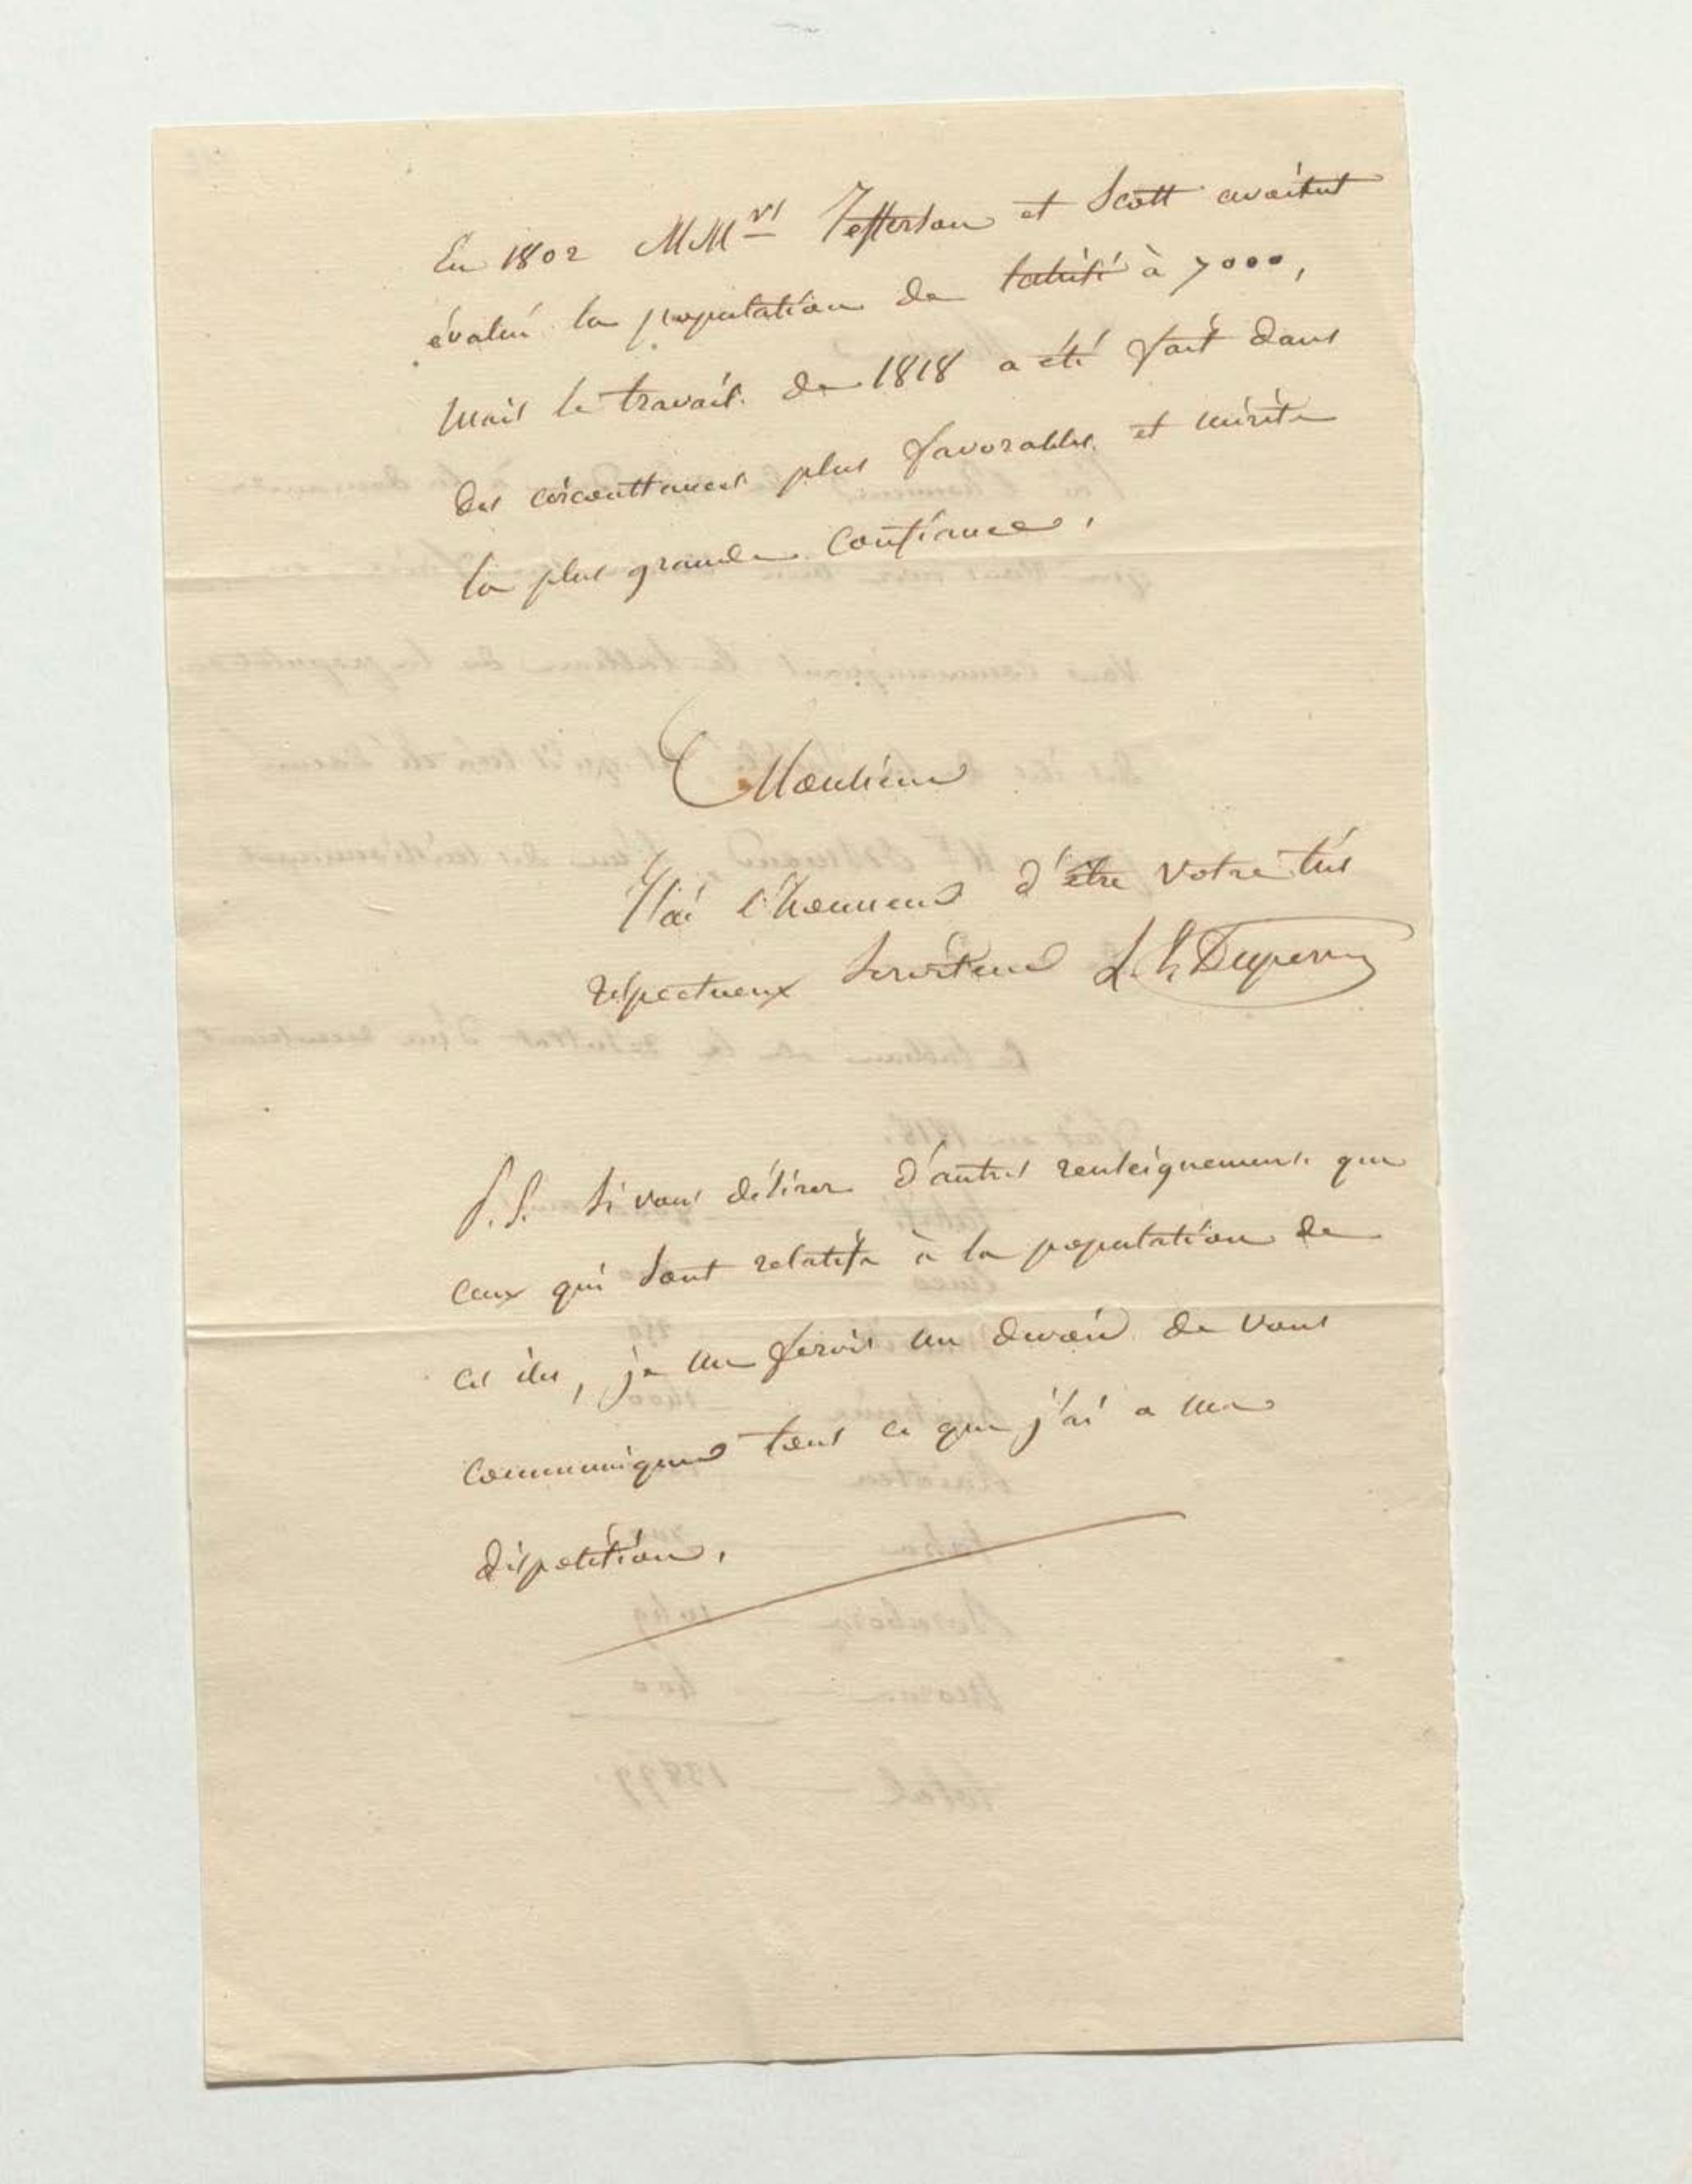 En 1802 MM.rs Jefferson et Scott avaient
évalué la population de tahiti à 7000,
mais le travail de 1818 a été fait dans
des circonstances plus favorables et mérite
la plus grande confiance.
Monsieur
J'ai l'honneur d'être votre très
respectueux serviteur L. I. Duperrey
P.S. Si vous désirez d'autres renseignements que
ceux qui sont relatifs à la population de
ces iles, je me ferois un devoir de vous
communiquer tout ce que j'ai a ma
disposition.